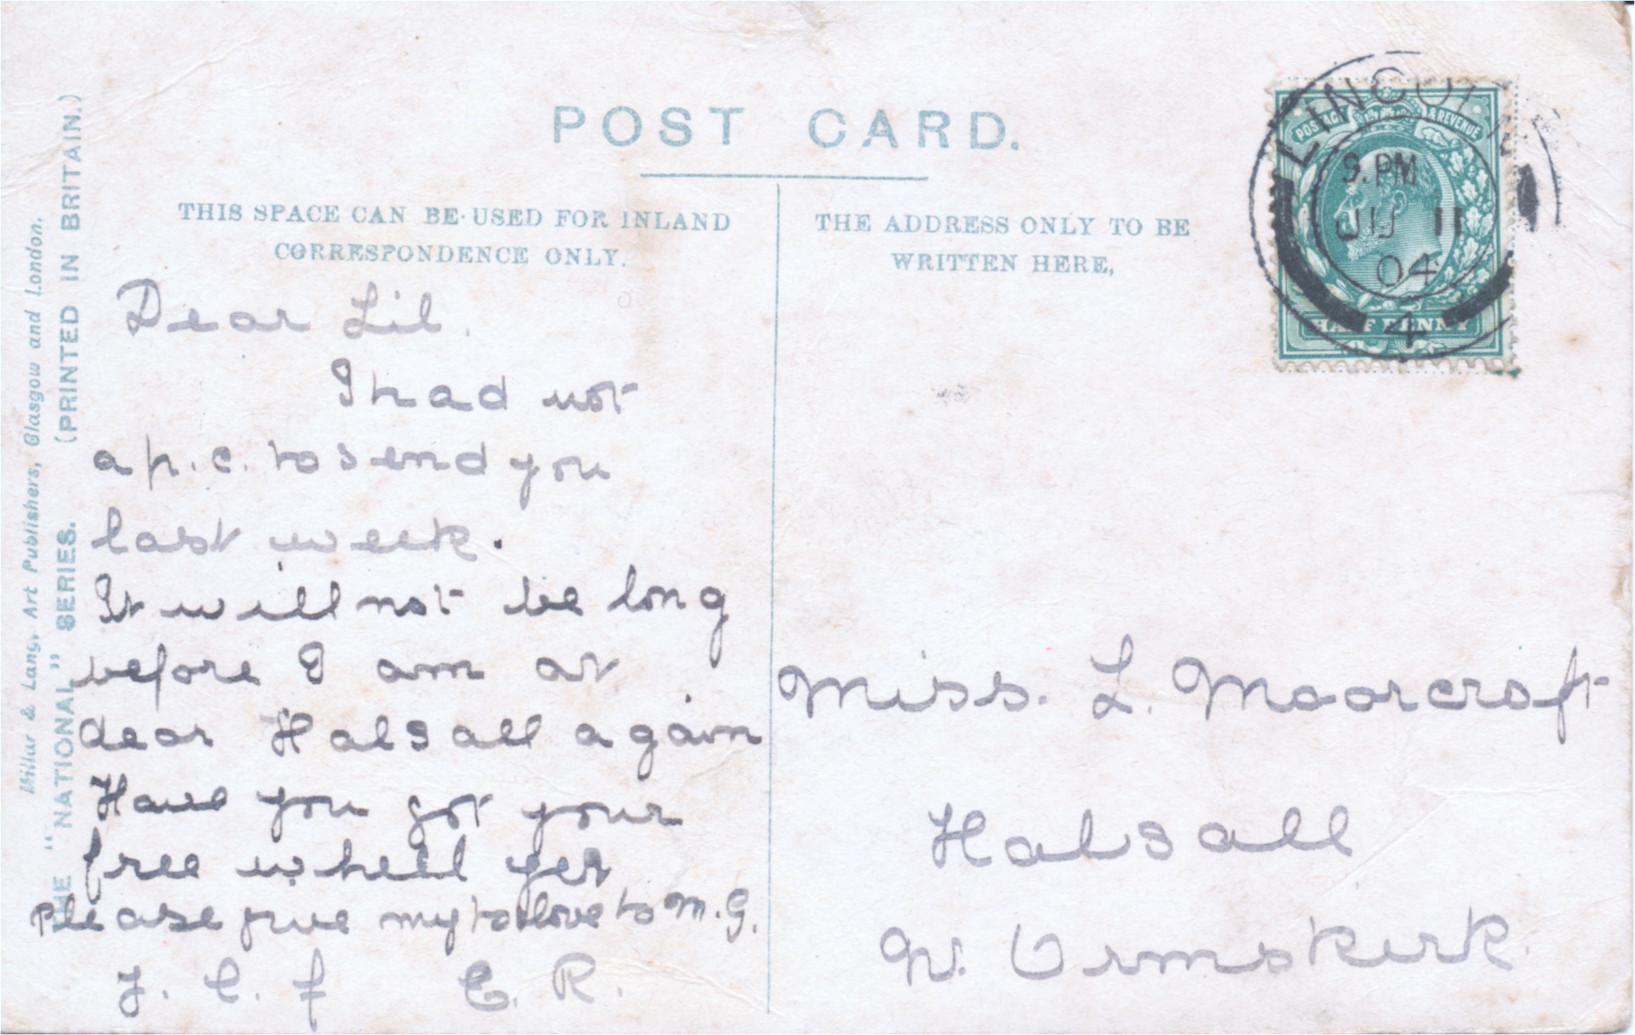 POST CARD.
THIS SPACE CAN BE USED FOR INLAND
CORRESPONDENCE ONLY.
THE ADDRESS ONLY TO BE
WRITTEN HERE,
Millar & Lang, Art Publishers, Glasgow and London.
THE "NATIONAL" SERIES. (PRINTED IN BRITAIN.)
LINCOLN
9. PM
11
04
4
POSTAGE & REVENUE
HALF PENNY
Dear Lil.
I had not
a p.c. to send you
last week.
It will not be long
before I am at
dear Halsall again
Have you got your
free wheel yet
Please give my love to M.G.
E. R.
Miss. L. Moorcroft
Halsall
N. Ormskirk.